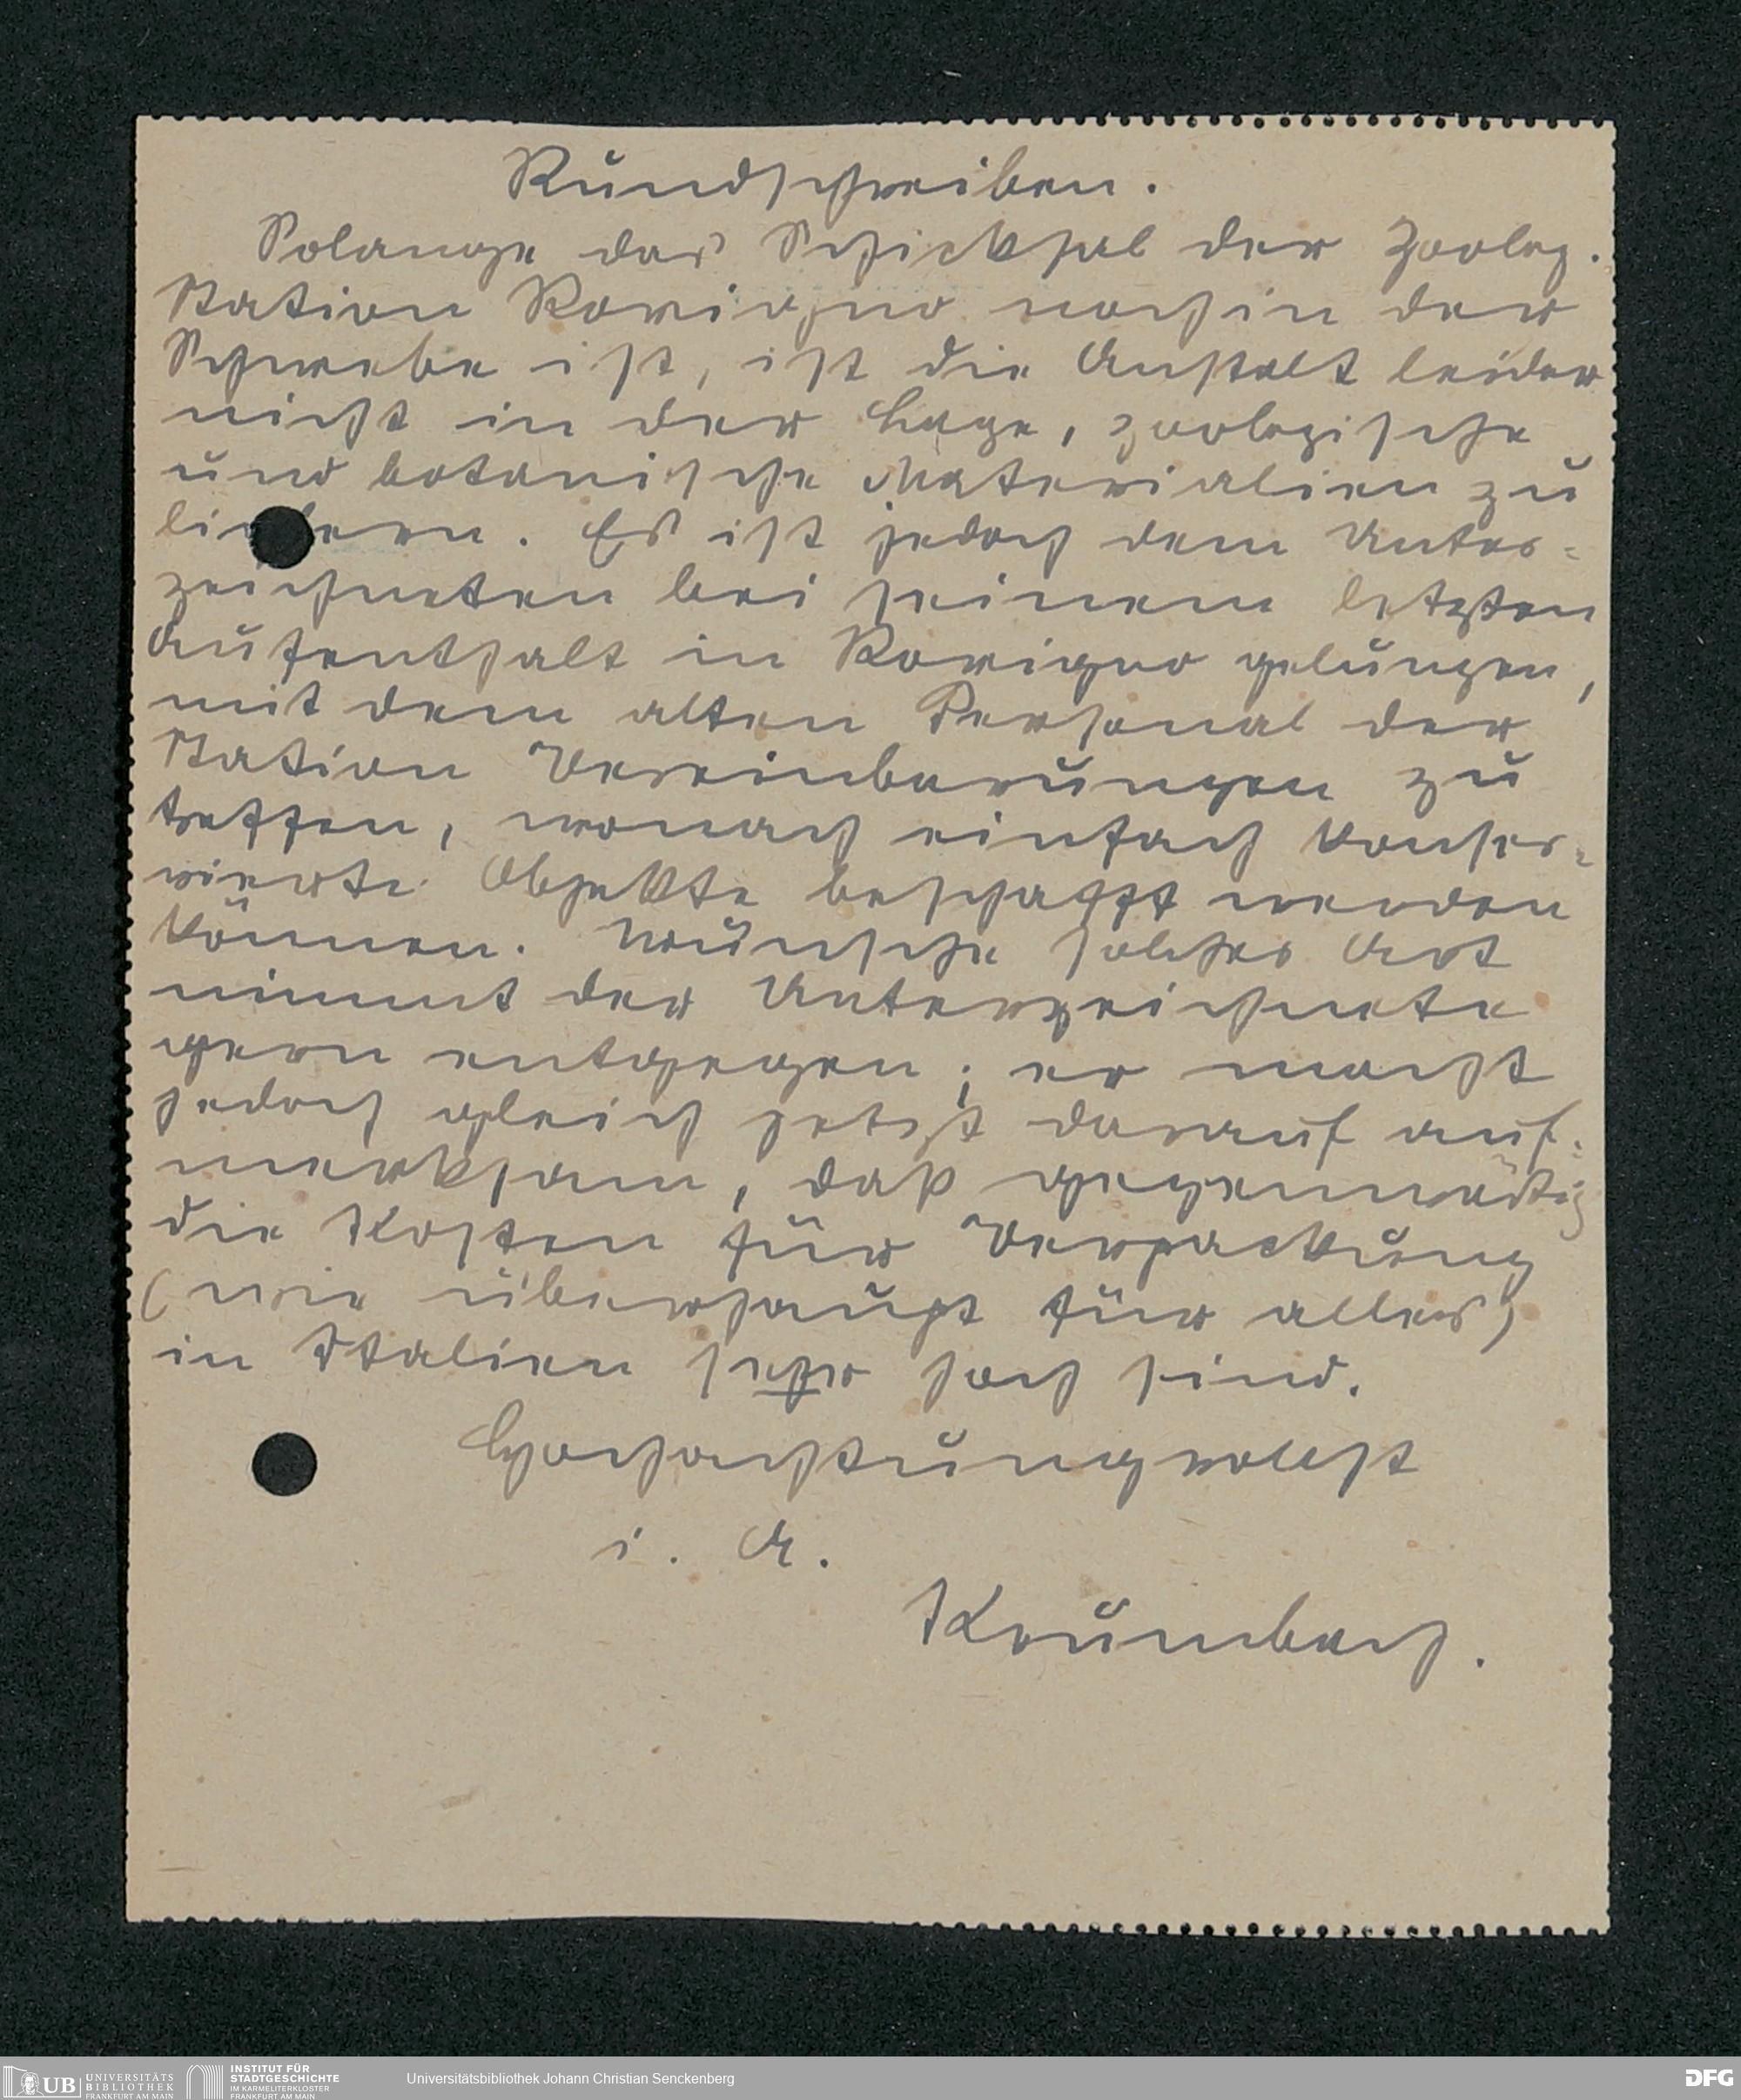 Rundschreiben.
Solange das Schicksal der Zoolog.
Station Rovigno noch in der
Schwebe ist, ist die Anstalt leider
nicht in der Lage, zoologische
und botanische Materialien zu
liefern. Es ist jedoch dem Unter-
zeichneten bei seinem letzten
Aufenthalt in Rovigno gelungen,
mit dem alten Personal der
Station Vereinbarungen zu
treffen, wonach einfach konser-
vierte Objekte beschafft werden
können. Wünsche solcher Art
nimmt der Unterzeichnete
gern entgegen; er macht
jedoch gleich jetzt darauf auf-
merksam, daß gegenwärtig
die Kosten für Verpackung
(wie überhaupt für alles)
in Italien sehr hoch sind.
Hochachtungvollst
i. A.
Krumbach.
UB UNIVERSITÄTS
BIBLIOTHEK
FRANKFURT AM MAIN
INSTITUT FÜR
STADTGESCHICHTE
IM KARMELITERKLOSTER
FRANKFURT AM MAIN
Universitätsbibliothek Johann Christian Senckenberg
DFG